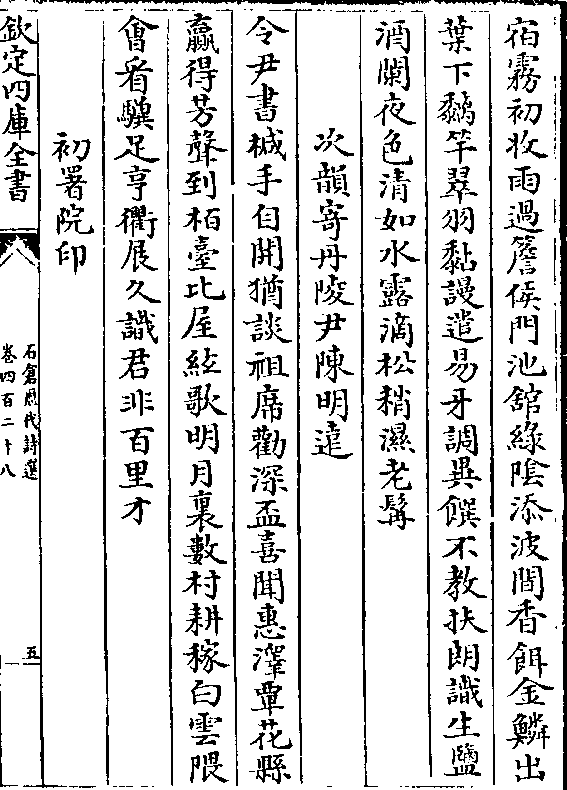 宿霧初收雨過簷侯門池舘緑隂添波間香餌金鱗出
葉下黐竿翠羽黏謾遣易牙調異饌不教扶朗識生鹽
酒闌夜色清如水露滴松稍濕老髯
次韻寄丹陵尹陳明逺
令尹書椷手自開猶談祖席勸深盃喜聞惠澤覃花縣
贏得芳聲到栢臺比屋絃歌明月裏數村耕稼白雲隈
㑹看驥足亨衢展久識君非百里才
初署院印
欽定四庫全書
石倉歴代詩選
卷四百二十八
五